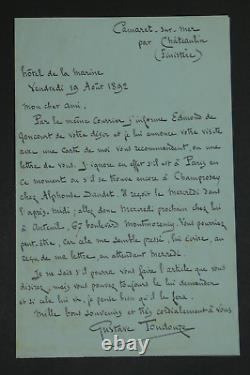 Camaret-sur-mer
par Châteaulin
(Finistère)
hôtel de la marine
Vendredi 19 Août 1892
Mon cher ami,
Par le même courrier j'informe Edmond de
Goncourt de votre désir et je lui annonce votre visite
avec une carte de moi vous recommandant, ou une
lettre de vous. J'ignore en effet s'il est à Paris en
ce moment ou s'il se trouve encore à Champrosay
chez Alphonse Daudet. Il reçoit le mercredi dans
l'après-midi; allez donc mercredi prochain chez lui
à Auteuil, 67 boulevard Montmorency. Vous pourrez
peut-être, car cela me semble pressé, lui écrire, au
reçu de ma lettre, en attendant mercredi.
Je ne sais s'il pourra vous faire l'article que vous
désirez, mais vous pouvez toujours le lui demander
et si cela lui va, je pense bien qu'il le fera.
Mille bons souvenirs et très cordialement à vous
Gustave Toudouze